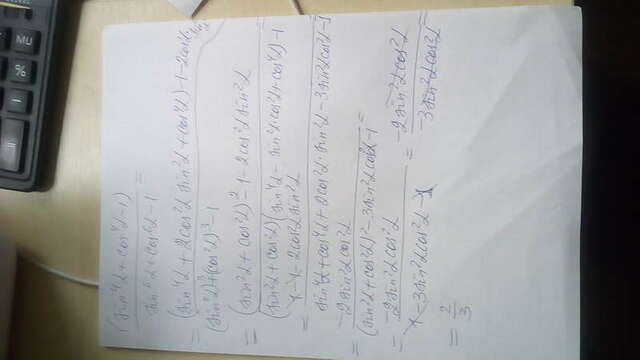 (sin⁴α + cos⁴α - 1)
sin⁶α + cos⁶α - 1 =
= (sin⁴α + 2cos²α sin²α + cos⁴α) - 1 - 2cos²α
(sin²α)³ + (cos²α)³ - 1
= (sin²α + cos²α)² - 1 - 2cos²α sin²α
(sin²α + cos²α)(sin⁴α - sin²α·cos²α + cos⁴α) - 1
= 1 - 1 - 2cos²α sin²α
sin⁴α + cos⁴α + 2cos²α·sin²α - 3sin²α cos²α - 1
= -2sin²α cos²α
(sin²α + cos²α)² - 3sin²α cos²α - 1 =
= -2sin²α cos²α
1 - 3sin²α cos²α - 1
= -2sin²α cos²α
-3sin²α cos²α =
= 2
3
MU
%